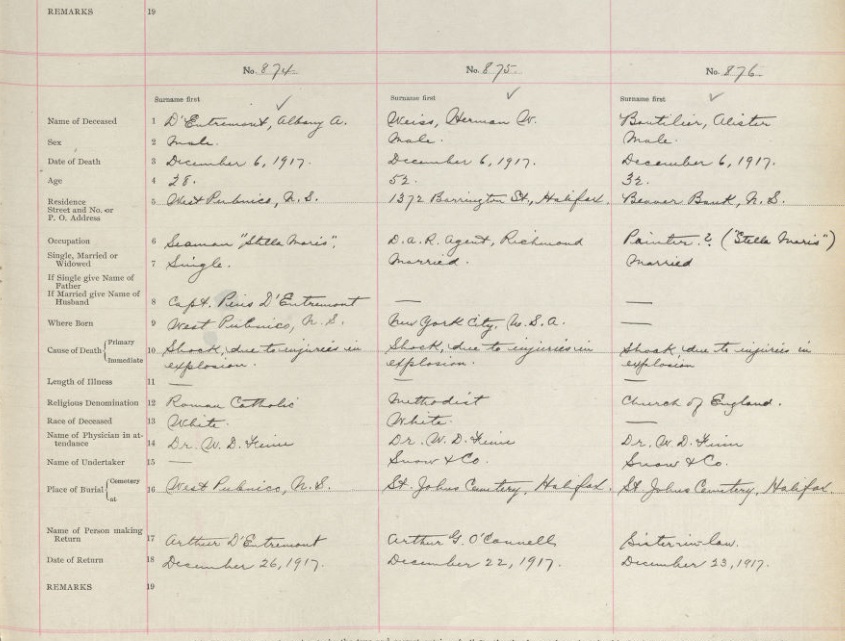 REMARKS 19
No. 874 No. 875 No. 876
Surname first Surname first Surname first
Name of Deceased 1 D'Entremont, Albany A. Weiss, Herman W. Boutilier, Alister
Sex 2 Male. Male. Male.
Date of Death 3 December 6, 1917. December 6, 1917. December 6, 1917.
Age 4 28. 52. 32.
Residence
Street and No. or
P. O. Address 5 West Pubnico, N. S. 1372 Barrington St., Halifax. Beaver Bank, N. S.
Occupation 6 Seaman "Stella Maris", D. A. R. Agent, Richmond Painter? ("Stella Maris")
Single, Married or
Widowed 7 Single. Married. Married
If Single give Name of
Father
If Married give Name of
Husband 8 Capt. D'Entremont — —
Where Born 9 West Pubnico, N. S. New York City, U. S. A. —
Cause of Death { Primary
Immediate 10 Shock, due to injuries in Shock, due to injuries in Shock, due to injuries in
explosion. explosion. explosion
Length of Illness 11 — — —
Religious Denomination 12 Roman Catholic Methodist Church of England.
Race of Deceased 13 White. White. —
Name of Physician in at-
tendance 14 Dr. W. D. Dr. W. D. Dr. W. D.
Name of Undertaker 15 — Snow & Co. Snow & Co.
Place of Burial { Cemetery
at 16 West Pubnico, N. S. St. Johns Cemetery, Halifax. St Johns Cemetery, Halifax.
Name of Person making
Return 17 Arthur D'Entremont Arthur G. O'Connell Sister-in-law.
Date of Return 18 December 26, 1917. December 22, 1917. December 23, 1917.
REMARKS 19